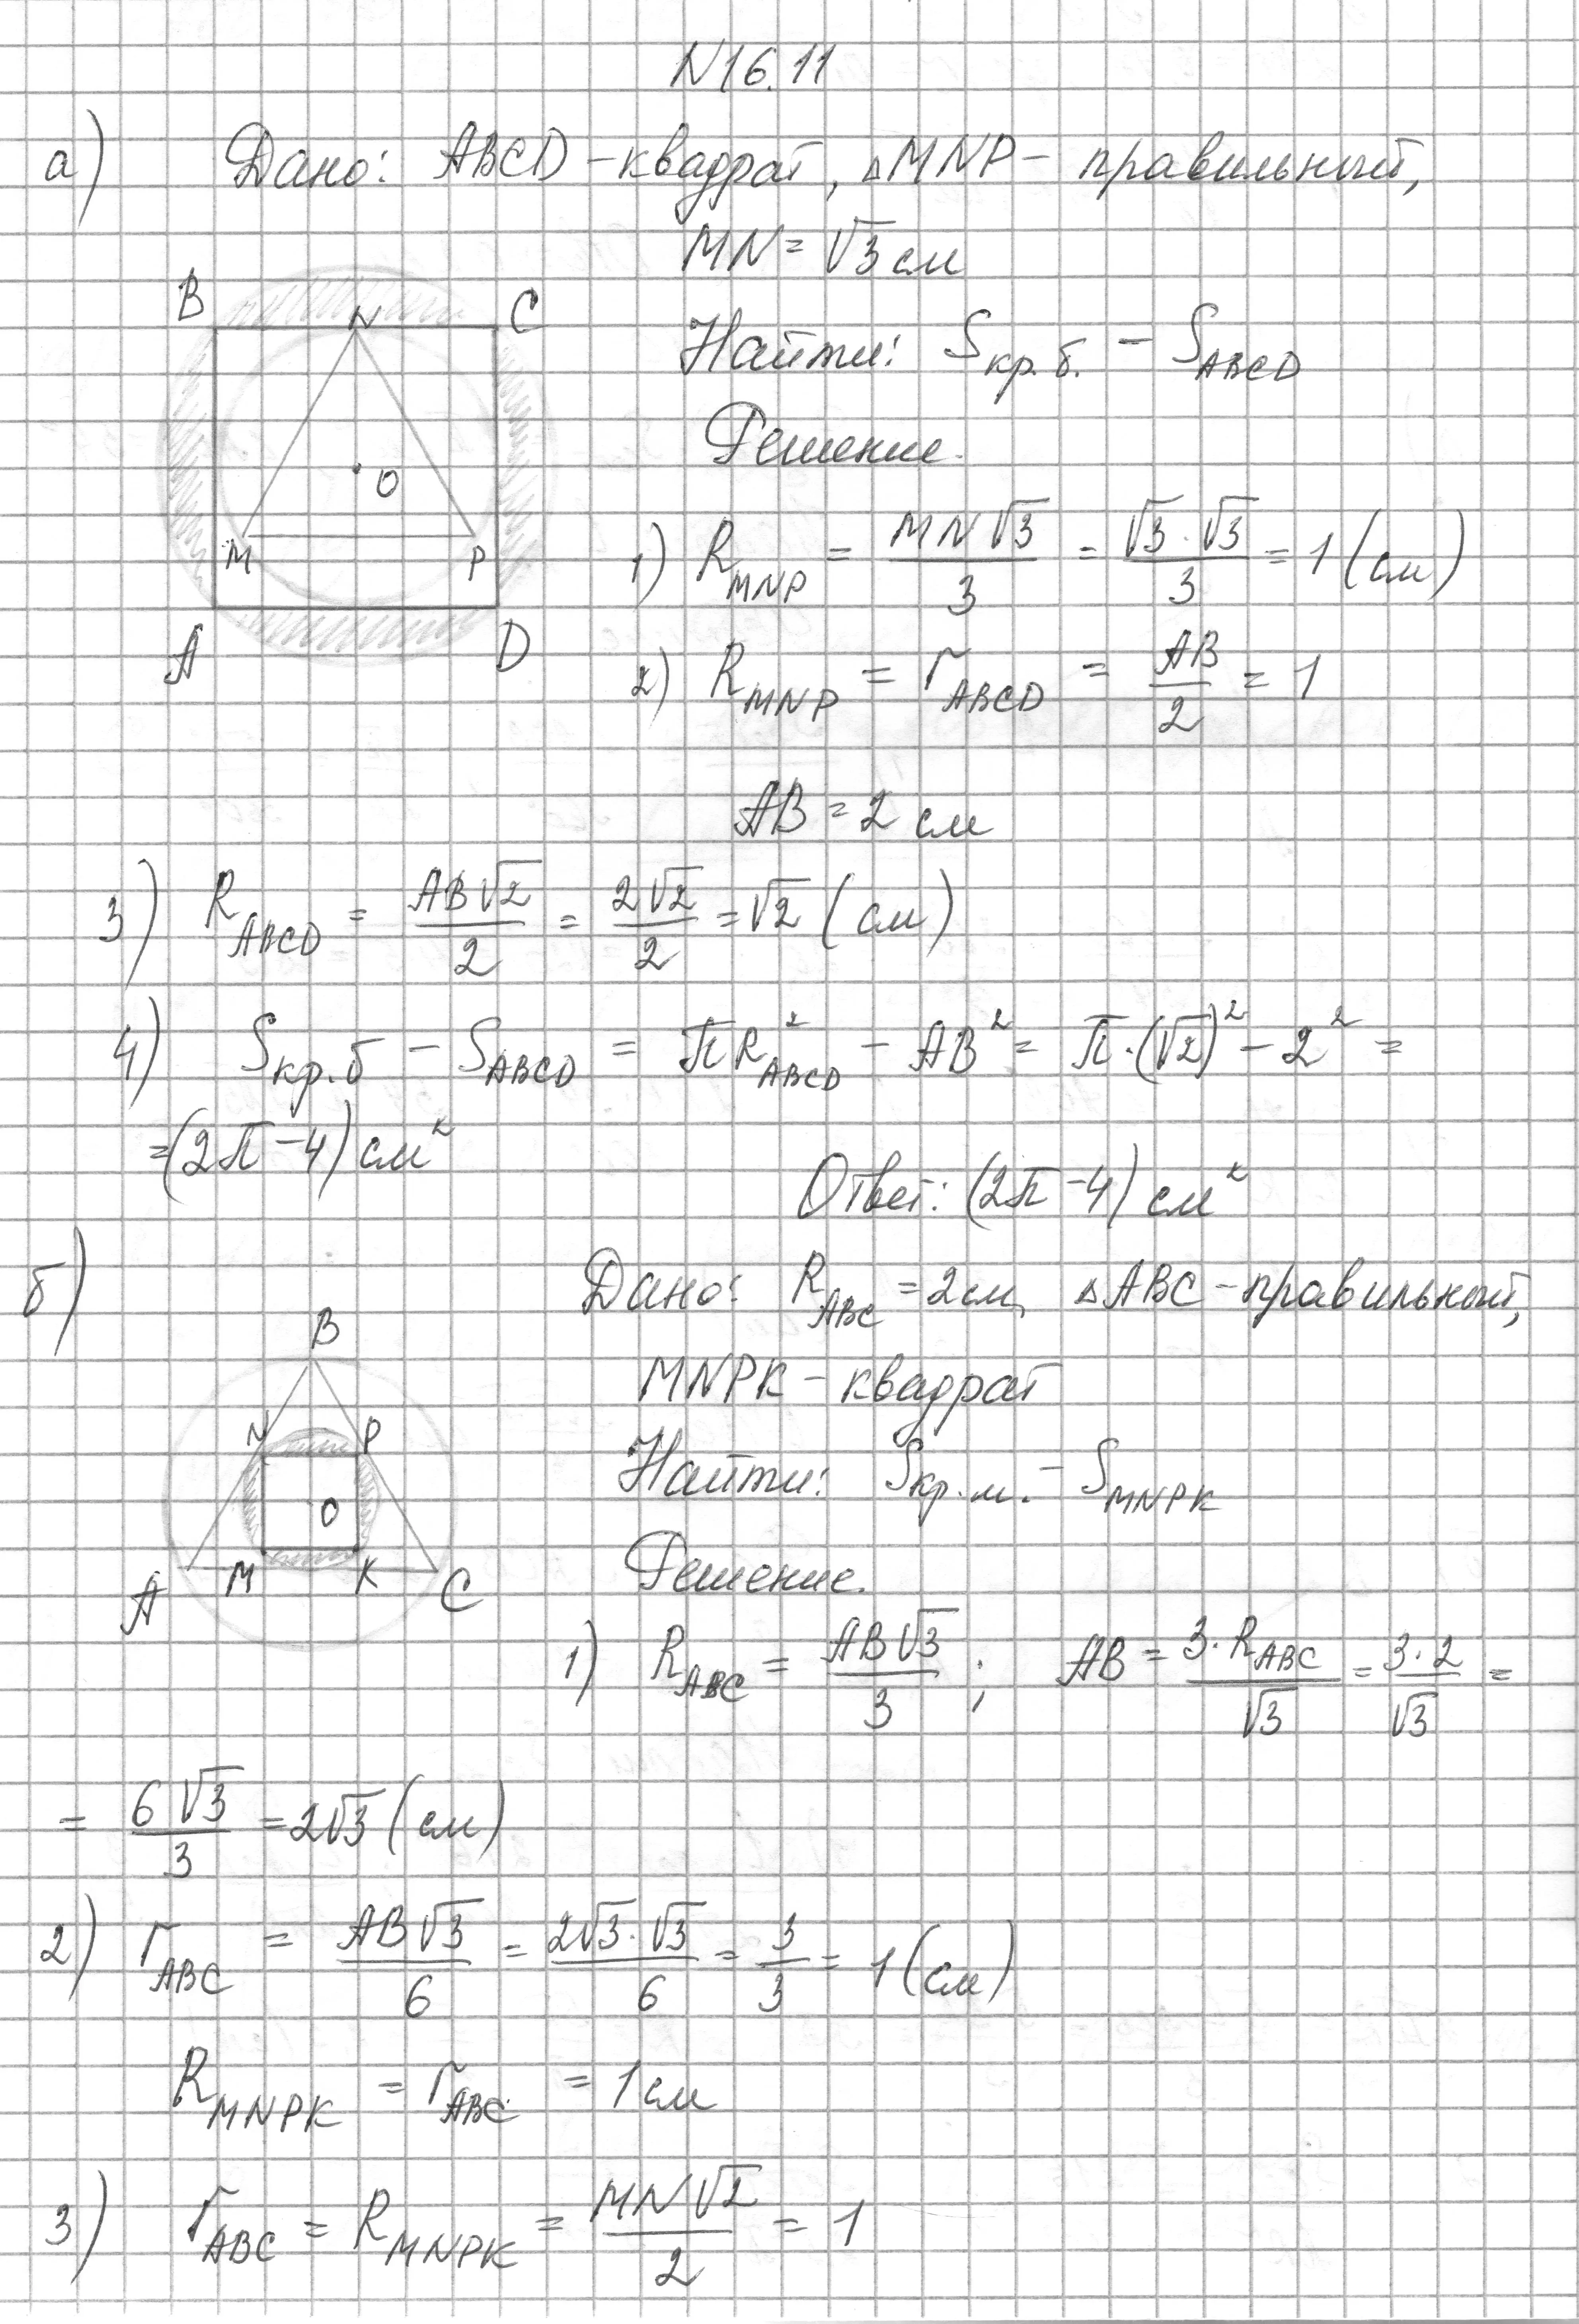 N16.11
а) Дано: ABCD - квадрат, △MNP - правильный,
MN = √3 см
B N C
O
M P
A D
Найти: Sкр.б. - S_ABCD
Решение.
1) R_MNP = MN√3/3 = √3·√3/3 = 1 (см)
2) R_MNP = r_ABCD = AB/2 = 1
AB = 2 см
3) R_ABCD = AB√2/2 = 2√2/2 = √2 (см)
4) Sкр.б - S_ABCD = πR²_ABCD - AB² = π·(√2)² - 2² =
= (2π - 4) см²
Ответ: (2π - 4) см²
б) Дано: R_ABC = 2 см, △ABC - правильный,
MNPK - квадрат
B
N P
O
A M K C
Найти: Sкр.м. - S_MNPK
Решение.
1) R_ABC = AB√3/3 ; AB = 3·R_ABC/√3 = 3·2/√3 =
= 6√3/3 = 2√3 (см)
2) r_ABC = AB√3/6 = 2√3·√3/6 = 3/3 = 1 (см)
R_MNPK = r_ABC = 1 см
3) r_ABC = R_MNPK = MN√2/2 = 1